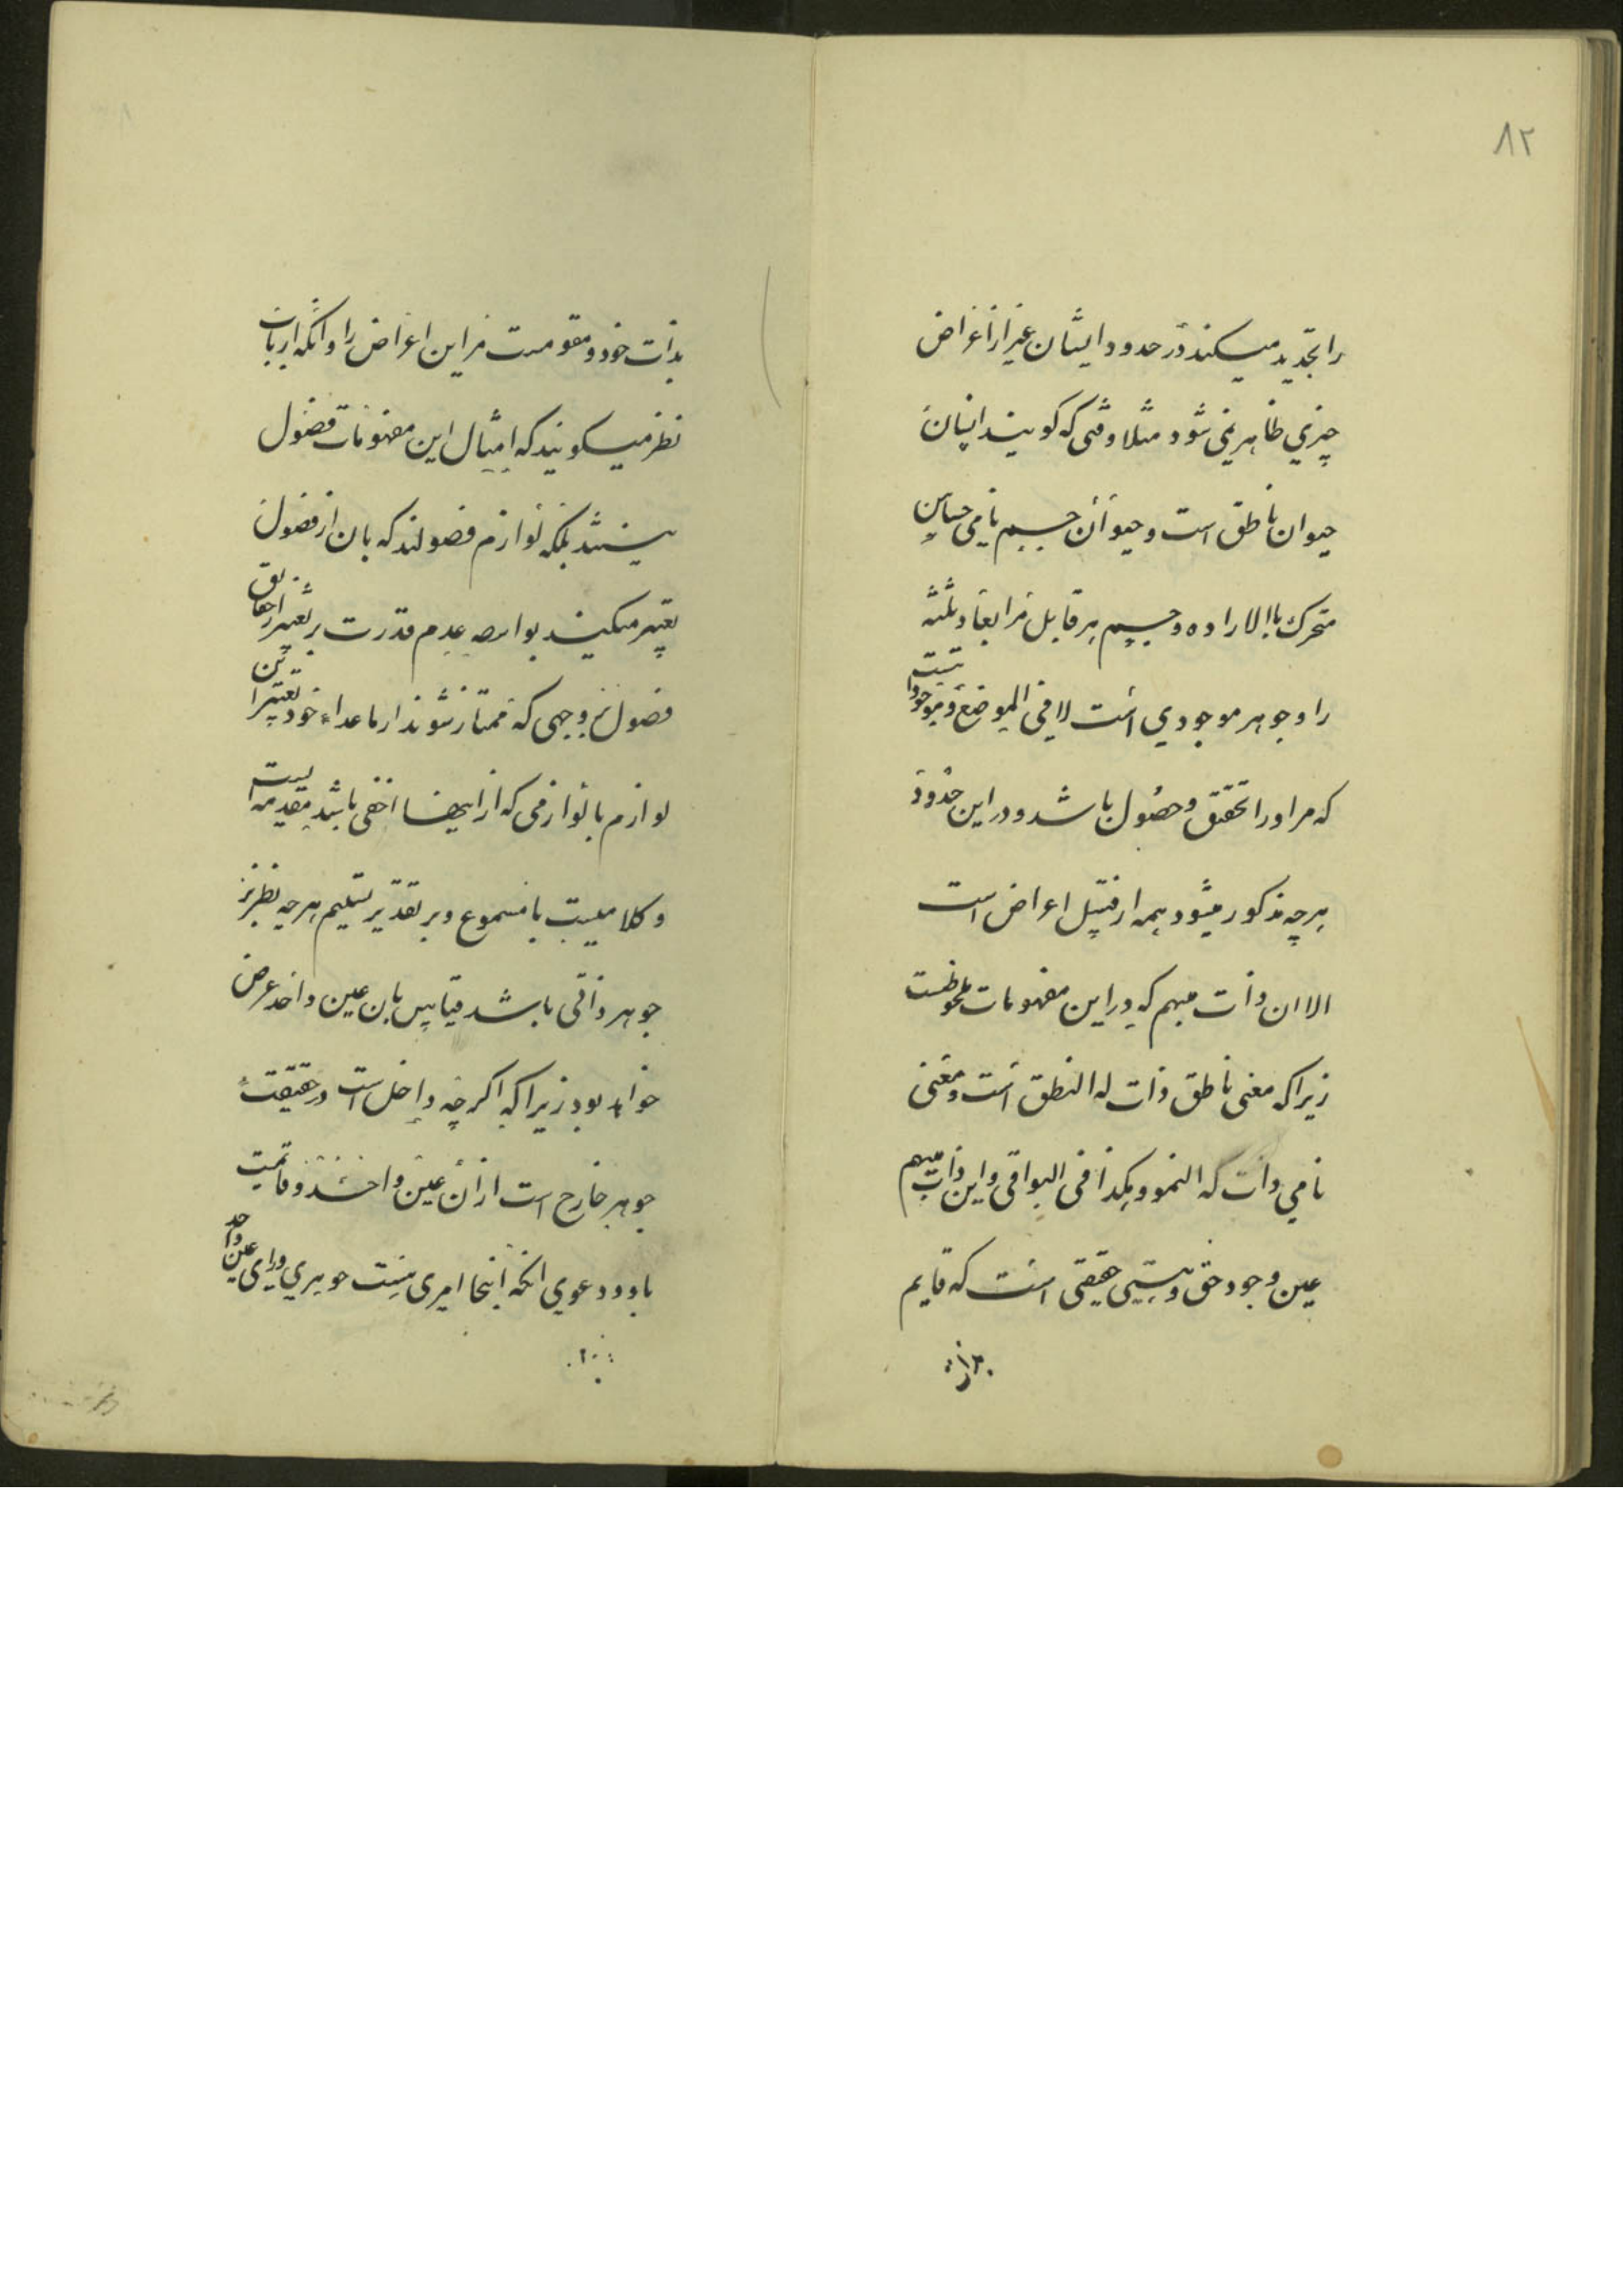 ۸۲
را تحدید میکنند در حدود ایشان غیر از اعراض
چیزی ظاهر نمی شود مثلا وقتی که گویند انسان
حیوان ناطق است و حیوان جسم نامی حساس
متحرک باالاراده و جسم جوهر قابل مر ابعاد ثلثه
را و جوهر موجودی است لا فی الموضوع و موجود ذاتیست
که مر او را تحقق و حصول باشد و در این حدود
هرچه مذکور میشود همه از قبیل اعراض است
الا ان ذات مبهم که در این مفهومات ملحوظست
زیرا که معنی ناطق ذات له النطق است و معنی
نامی ذات له النمو و هکذا فی البواقی و این ذات مبهم
عین وجود حق و هستی حقیقی است که قایم
بذات خود و مقومست مر این اعراض را و انکه ارباب
نظر میگویند که امثال این مفهومات فصول
نیستند بلکه لوازم فصولند که بان از فصول
تعبیر میکنند بواسطه عدم قدرت بر تعبیر از حقایق
فصول بر وجهی که ممتاز شوند از ماعداء خود بغیر این
لوازم یا لوازمی که از اینها اخفی باشد مقدمه ایست
و کلامیست نامسموع و بر تقدیر تسلیم هرچه نظر بر
جوهر ذاتی باشد قیاس بان عین واحد عرض
خواهد بود زیرا که اگرچه داخل است در حقیقت
جوهر خارج است از ان عین واحد و قایمست
باو و دعوی انکه اینجا امری هست جوهری ورای عین واحد